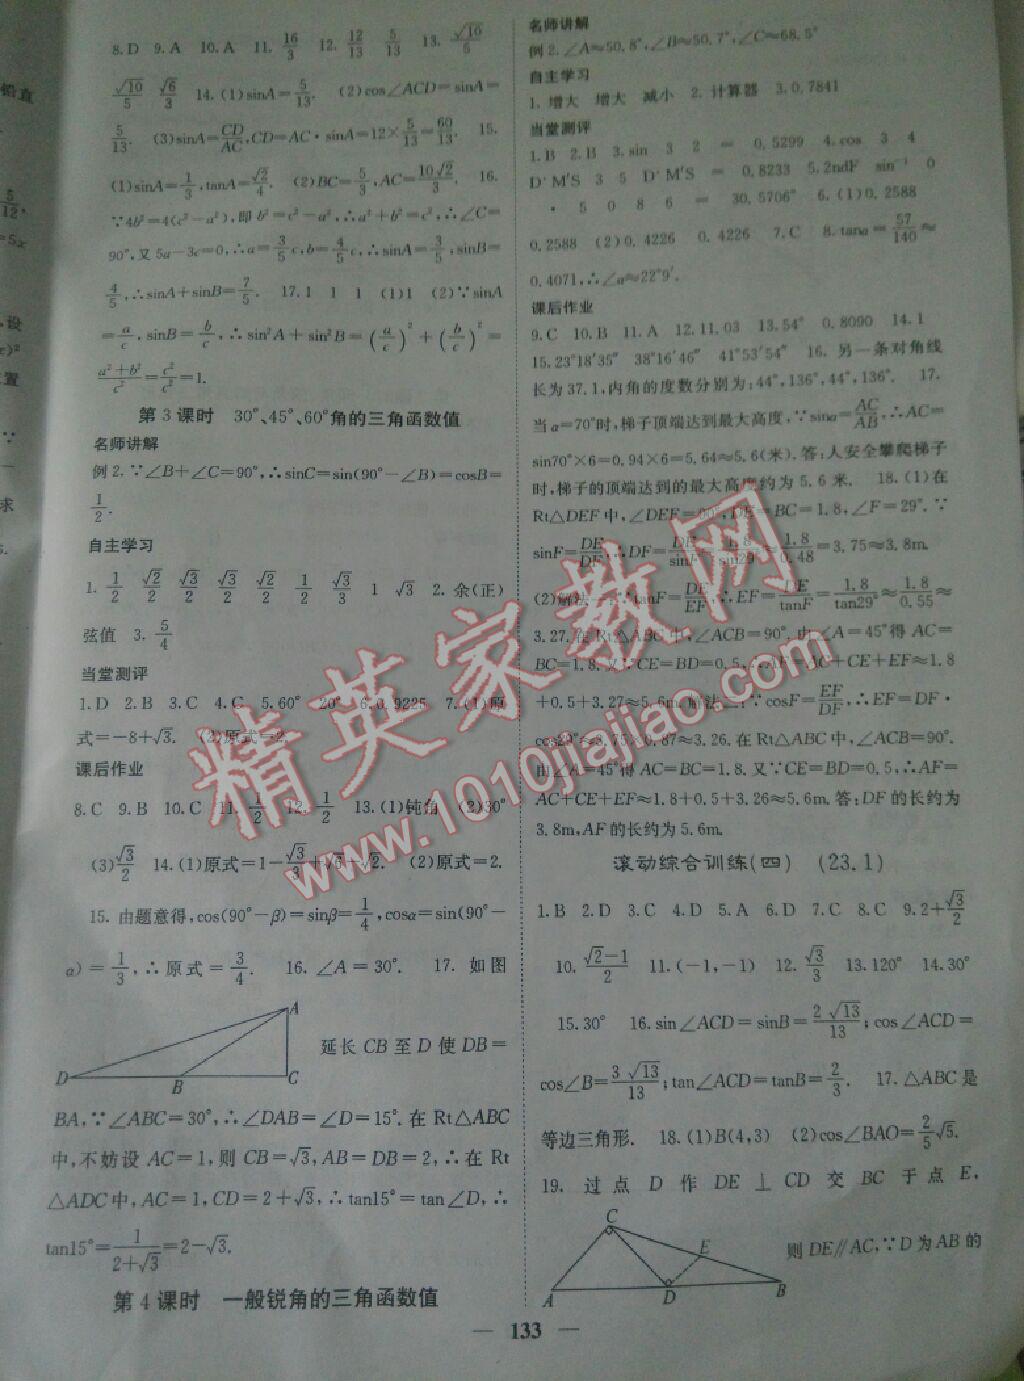 8.D 9.A 10.A 11. 16/3 12. 12/13 5/13 13. √10/5
√10/5 √6/3 14.(1)sinA=5/13. (2)cos∠ACD=sinA=
5/13. (3)sinA=CD/AC,CD=AC·sinA=12×5/13=60/13. 15.
(1)sinA=1/3,tanA=√2/4. (2)BC=5/3,AC=10√2/3. 16.
∵4b²=4(c²-a²),即b²=c²-a²,∴a²+b²=c²,∴∠C=
90°,又5a-3c=0,∴a=3/5c,b=4/5c,∴sinA=3/5,sinB=
4/5,∴sinA+sinB=7/5. 17.1 1 1 (1)1 (2)∵sinA
=a/c,sinB=b/c,∴sin²A+sin²B=(a/c)²+(b/c)²=
a²+b²/c²=c²/c²=1.
第3课时 30°、45°、60°角的三角函数值
名师讲解
例2.∵∠B+∠C=90°,∴sinC=sin(90°-∠B)=cosB=
1/2.
自主学习
1. 1/2 √2/2 √3/2 √3/2 √2/2 1/2 √3/3 1 √3 2.余(正)
弦值 3. 5/4
当堂测评
1.D 2.B 3.C 4.C 5.60° 20° 6.0.9225 7.(1)原
式=-8+√3. (2)原式=2.
课后作业
8.C 9.B 10.C 11. 1/2 12. 1/2 13.(1)钝角 (2)30°
(3)√3/2 14.(1)原式=1-√3/3+√3+√2. (2)原式=2.
15.由题意得,cos(90°-β)=sinβ=1/4,cosα=sin(90°-
α)=1/3,∴原式=3/4. 16.∠A=30°. 17.如图
A
D B C
延长CB至D使DB=
BA,∵∠ABC=30°,∴∠DAB=∠D=15°.在Rt△ABC
中,不妨设AC=1,则CB=√3,AB=DB=2,∴在Rt
△ADC中,AC=1,CD=2+√3,∴tan15°=tan∠D,∴
tan15°=1/2+√3=2-√3.
第4课时 一般锐角的三角函数值
名师讲解
例2.∠A≈50.8°,∠B≈50.7°,∠C≈68.5°
自主学习
1.增大 增大 减小 2.计算器 3.0.7841
当堂测评
1.B 2.B 3.sin 3 2 = 0.5299 4.cos 3 4
D°M′S 3 5 D°M′S = 0.8233 5.2ndF sin⁻¹ 0
· 5 0 8 6 = 30.5706° 6.(1)0.2588
0.2588 (2)0.4226 0.4226 7.C 8.tanα=57/140≈
0.4071,∴∠α≈22°9′.
课后作业
9.C 10.B 11.A 12.11.03 13.54° 0.8090 14.1
15.23°18′35″ 38°16′46″ 41°53′54″ 16.另一条对角线
长为37.1,内角的度数分别为:44°,136°,44°,136°. 17.
当α=70°时,梯子顶端达到最大高度,∵sinα=AC/AB,∴AC=
sin70°×6=0.94×6=5.64≈5.6(米).答:人安全攀爬梯子
时,梯子的顶端达到的最大高度约为5.6米. 18.(1)在
Rt△DEF中,∠DEF=90°,DE=BC=1.8,∠F=29°.∵
sinF=DE/DF,∴DF=DE/sinF=1.8/sin29°≈1.8/0.48=3.75≈3.8m.
(2)解法一:∵tanF=DE/EF,∴EF=DE/tanF=1.8/tan29°≈1.8/0.55≈
3.27.在Rt△ABC中,∠ACB=90°.由∠A=45°得AC=
BC=1.8.又∵CE=BD=0.5,∴AF=AC+CE+EF≈1.8
+0.5+3.27≈5.6m.解法二:∵cosF=EF/DF,∴EF=DF·
cos29°≈3.75×0.87≈3.26.在Rt△ABC中,∠ACB=90°.
由∠A=45°得AC=BC=1.8.又∵CE=BD=0.5,∴AF=
AC+CE+EF≈1.8+0.5+3.26≈5.6m.答:DF的长约为
3.8m,AF的长约为5.6m.
滚动综合训练(四) (23.1)
1.B 2.D 3.C 4.D 5.A 6.D 7.C 8.C 9.2+√3/2
10. √2-1/2 11.(-1,-1) 12. √3/3 13.120° 14.30°
15.30° 16.sin∠ACD=sinB=2√13/13;cos∠ACD=
cos∠B=3√13/13;tan∠ACD=tanB=2/3. 17.△ABC是
等边三角形. 18.(1)B(4,3) (2)cos∠BAO=2/5√5.
19.过点D作DE⊥CD交BC于点E,
C
E
A D B
则DE∥AC,∵D为AB的
133
精英家教网
www.1010jiajiao.com